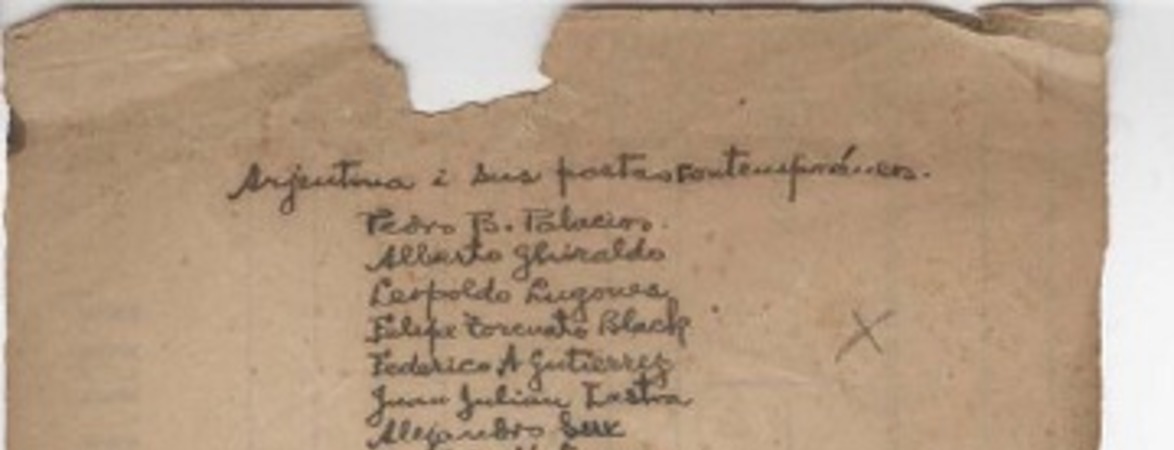 Arjentina i sus poetas contemporáneos.
Pedro B. Palacios.
Alberto Ghiraldo
Leopoldo Lugones
Felipe Torcuato Black
Federico A Gutierrez
Juan Julian Lastra
Alejandro Sux